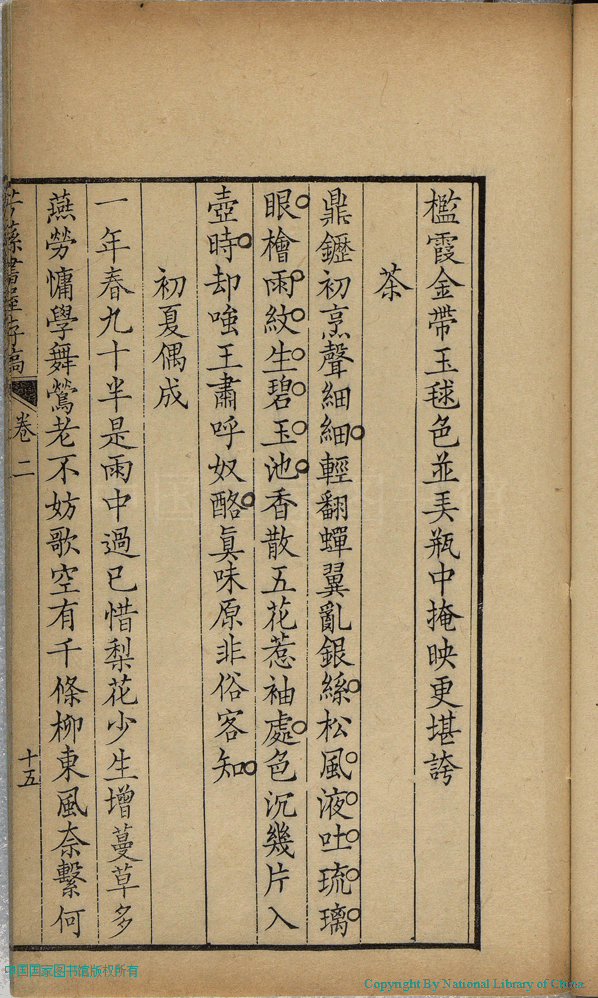 檻霞金帶玉毬色並美瓶中掩映更堪誇
茶
鼎鑪初烹聲細細輕翻蟬翼亂銀絲松風液吐琉璃
眼檜雨紋生碧玉池香散五花惹袖處色沉幾片入
壺時却嗤王肅呼奴酪眞味原非俗客知
初夏偶成
一年春九十半是雨中過已惜梨花少生增蔓草多
燕勞慵學舞鶯老不妨歌空有千條柳東風奈繫何
卷二
十五
中国国家图书馆版权所有
Copyright By National Library of China.